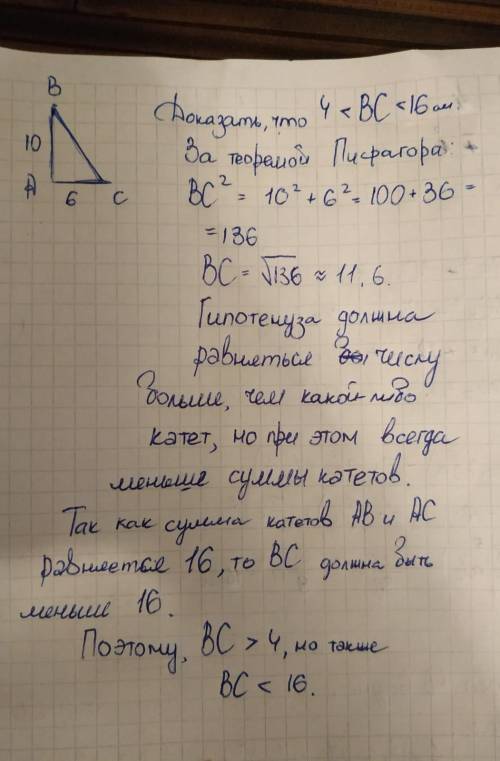 B
10
A
6
C
Доказать, что 4 < BC < 16 см.
За теоремой Пифагора:
BC² = 10² + 6² = 100 + 36 =
= 136
BC = √136 ≈ 11,6.
Гипотенуза должна
равняться числу
больше, чем какой-либо
катет, но при этом всегда
меньше суммы катетов.
Так как сумма катетов AB и AC
равняется 16, то BC должна быть
меньше 16.
Поэтому, BC > 4, но также
BC < 16.